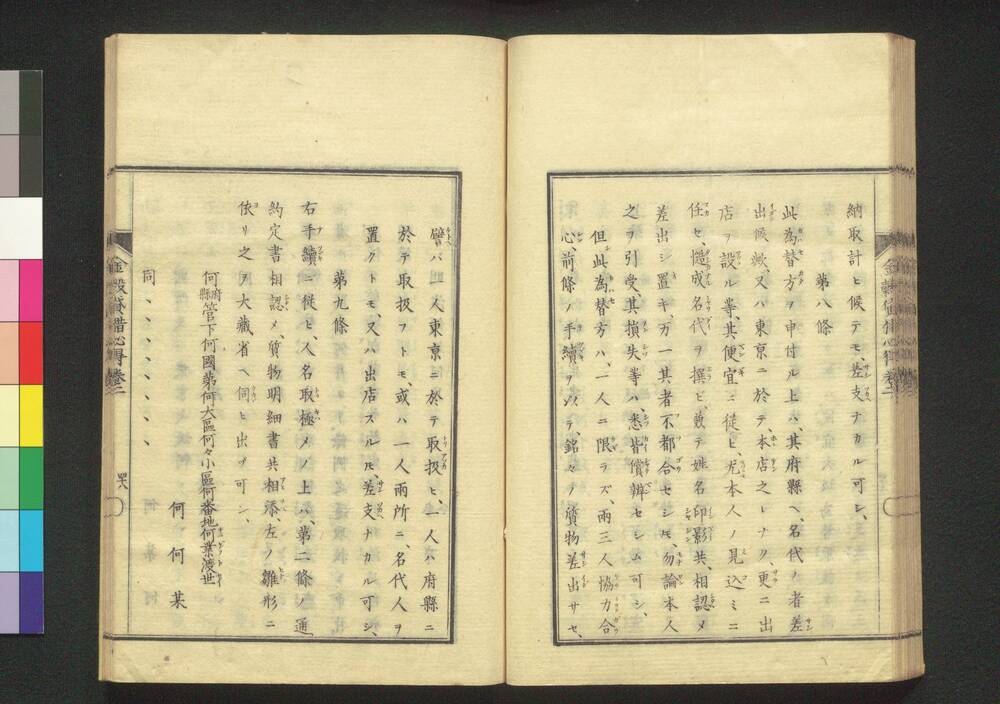 納取計ヒ候テモ、差支ナカル可シ、
第八條
此為替方ヲ申付ル上ハ、其府縣ヘ、名代ノ者差
出候歟、又ハ東京ニ於テ、本店之レナク、更ニ出
店ヲ設ル等、其便宜ニ從ヒ、尤本人ノ見込ミニ
任セ、慥成名代ヲ撰ヒ、敢テ姓名印影共、相認メ
差出シ置キ、万一其者不都合セシ𪜈、勿論本人
之ヲ引受、其損失等ハ、悉皆償辨セシム可シ、
但此為替方ハ、一人ニ限ラズ、兩三人協力合
心、前條ノ手續ヲ以テ、銘々ノ質物差出サセ、
譬バ甲一人東京ニ於テ取扱ヒ、一人ハ府縣ニ
於テ取扱フトモ、或ハ一人兩所ニ、名代人ヲ
置クトモ、又ハ出店スル𪜈差支ナカル可シ、
第九條
右手續ニ從ヒ、人名取極メノ上ハ、第二條ノ通
約定書相認メ、質物明細書共相添、左ノ雛形ニ
依リ之ヲ大藏省ヘ伺ヒ出ツ可シ、
何府縣管下何國第何大區何々小區何番地何業渡世
何何某
同、、、、、、、、
金穀貸借心得 卷二
四十八